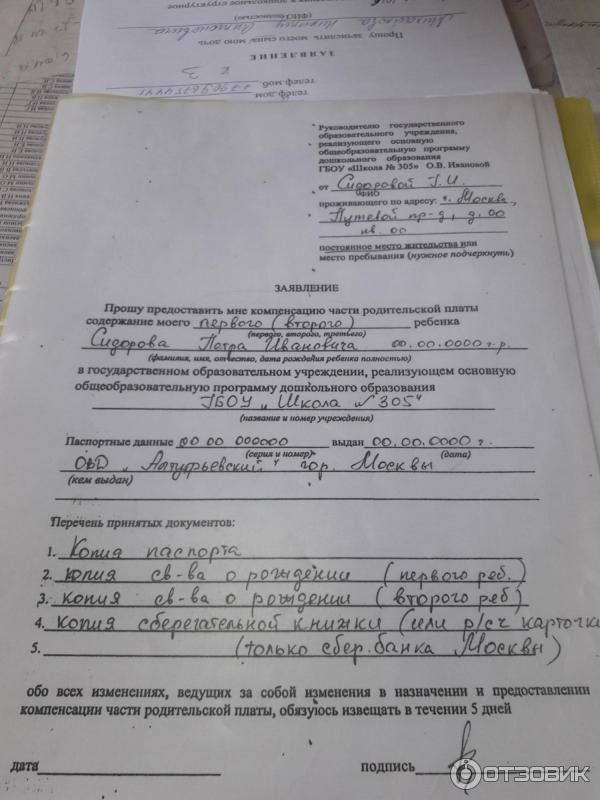 дошкольное структурное
(ФИО полностью)
Прошу зачислить моего сына/ мою дочь
ЗАЯВЛЕНИЕ
телеф.моб
телеф.дом
Руководителю государственного
образовательного учреждения,
реализующего основную
общеобразовательную программу
дошкольного образования
ГБОУ «Школа № 305» О.В. Ивановой
от Сидоровой Г.И.
ФИО
проживающего по адресу: г. Москва,
Путевой пр-д, д. 00
кв. 00
постоянное место жительства или
место пребывания (нужное подчеркнуть)
ЗАЯВЛЕНИЕ
Прошу предоставить мне компенсацию части родительской платы
содержание моего первого (второго) ребенка
(первого, второго, третьего)
Сидорова Петра Ивановича 00.00.0000 г.р.
(фамилия, имя, отчество, дата рождения ребенка полностью)
в государственном образовательном учреждении, реализующем основную
общеобразовательную программу дошкольного образования
ГБОУ „Школа №305"
(название и номер учреждения)
Паспортные данные 00 00 000000 выдан 00.00.0000 г.
(серия и номер) (дата)
ОВД „Алтуфьевский" гор. Москвы
(кем выдан)
Перечень принятых документов:
1. Копия паспорта
2. копия св-ва о рождении (первого реб.)
3. копия св-ва о рождении (второго реб)
4. копия сберегательной книжки (или р/сч карточки
5. (только сбер.банка Москвы)
обо всех изменениях, ведущих за собой изменения в назначении и предоставлении
компенсации части родительской платы, обязуюсь извещать в течении 5 дней
дата подпись
ОТЗОВИК